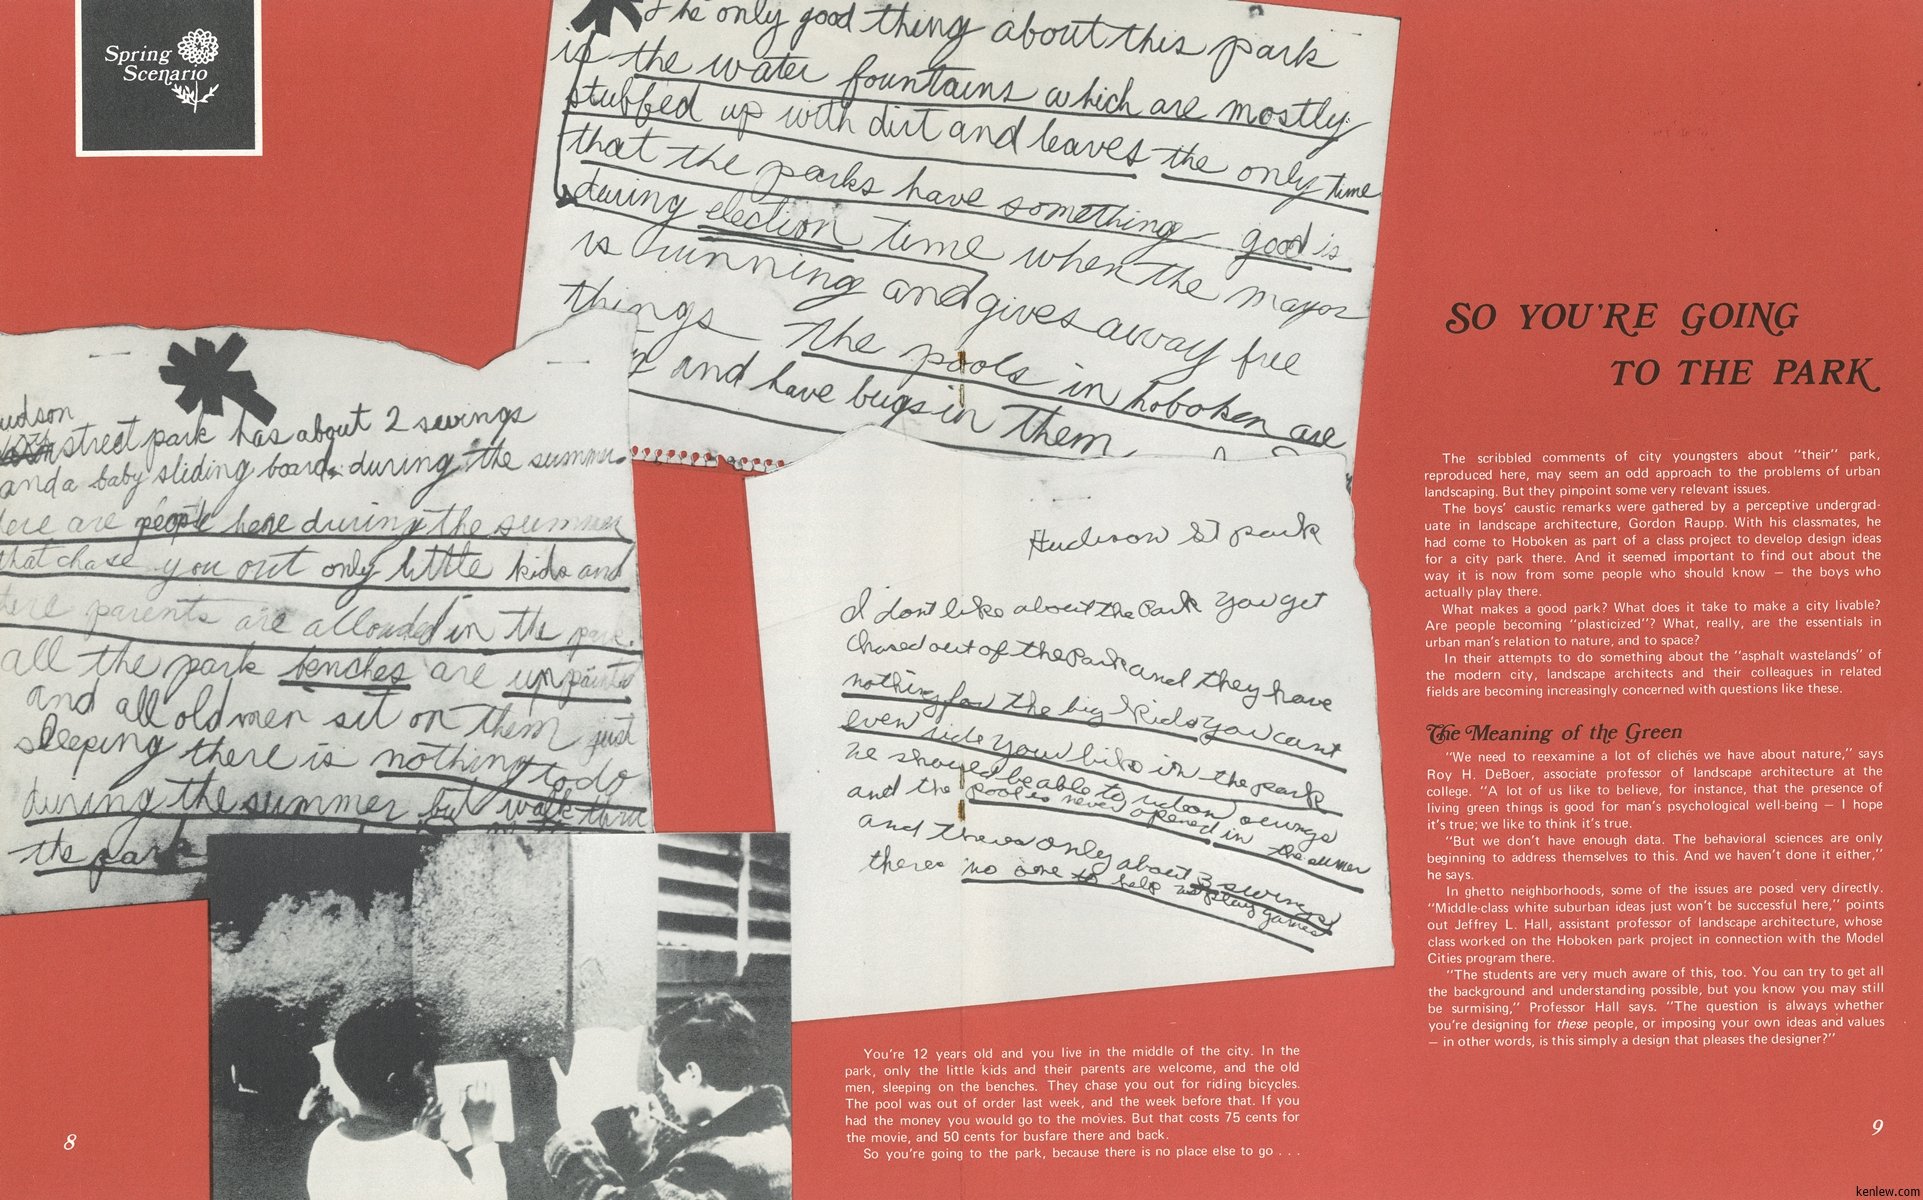 Spring
Scenario
The only good thing about this park
is the water fountains which are mostly
stubbed up with dirt and leaves the only time
that the parks have something good is
during election time when the mayor
is running and gives away free
things the pools in hoboken are
and have bugs in them
udson
street park has about 2 swings
and a baby sliding board. during the summer
ere are people here during the summer
that chase you out only little kids and
there parents are allouded in the park.
all the park benches are unpainted
and all old men sit on them just
sleeping there is nothing to do
during the summer but walk thru
the par
Hudison St park
I dont like about the Park you get
chased out of the Park and they have
nothing for the big kids you cant
even ride your bike in the park
he should be able to ride on swings
and the pool is never opened in the sumer
and theres only about 3 swings
theres no one to help us play games
SO YOU'RE GOING
TO THE PARK
The scribbled comments of city youngsters about "their" park,
reproduced here, may seem an odd approach to the problems of urban
landscaping. But they pinpoint some very relevant issues.
The boys' caustic remarks were gathered by a perceptive undergrad-
uate in landscape architecture, Gordon Raupp. With his classmates, he
had come to Hoboken as part of a class project to develop design ideas
for a city park there. And it seemed important to find out about the
way it is now from some people who should know — the boys who
actually play there.
What makes a good park? What does it take to make a city livable?
Are people becoming "plasticized"? What, really, are the essentials in
urban man's relation to nature, and to space?
In their attempts to do something about the "asphalt wastelands" of
the modern city, landscape architects and their colleagues in related
fields are becoming increasingly concerned with questions like these.
The Meaning of the Green
"We need to reexamine a lot of clichés we have about nature," says
Roy H. DeBoer, associate professor of landscape architecture at the
college. "A lot of us like to believe, for instance, that the presence of
living green things is good for man's psychological well-being — I hope
it's true; we like to think it's true.
"But we don't have enough data. The behavioral sciences are only
beginning to address themselves to this. And we haven't done it either,"
he says.
In ghetto neighborhoods, some of the issues are posed very directly.
"Middle-class white suburban ideas just won't be successful here," points
out Jeffrey L. Hall, assistant professor of landscape architecture, whose
class worked on the Hoboken park project in connection with the Model
Cities program there.
"The students are very much aware of this, too. You can try to get all
the background and understanding possible, but you know you may still
be surmising," Professor Hall says. "The question is always whether
you're designing for these people, or imposing your own ideas and values
— in other words, is this simply a design that pleases the designer?"
You're 12 years old and you live in the middle of the city. In the
park, only the little kids and their parents are welcome, and the old
men, sleeping on the benches. They chase you out for riding bicycles.
The pool was out of order last week, and the week before that. If you
had the money you would go to the movies. But that costs 75 cents for
the movie, and 50 cents for busfare there and back.
So you're going to the park, because there is no place else to go . . .
8
9
kenlew.com